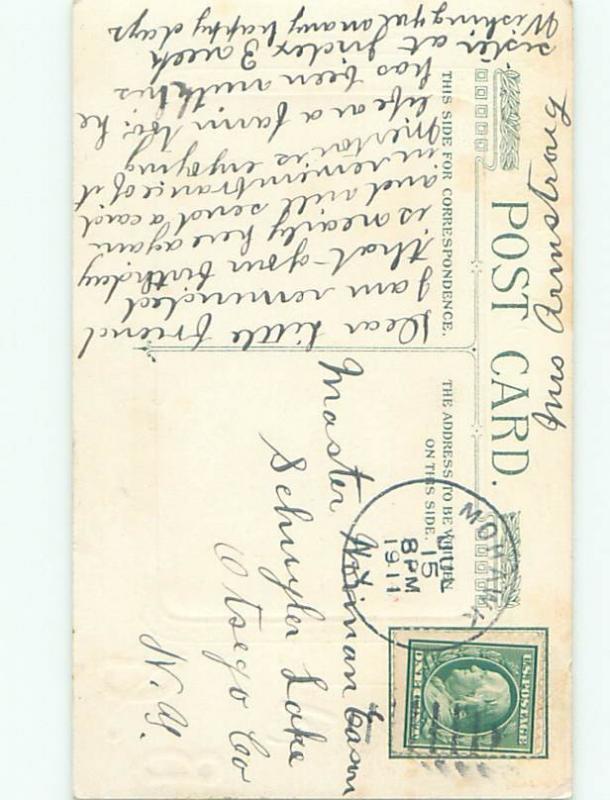 POST CARD.
THIS SIDE FOR CORRESPONDENCE.
THE ADDRESS TO BE WRITTEN
ON THIS SIDE.
MOHAWK
JUN
15
8 PM
1911
U.S. POSTAGE
Dear little friend
I am reminded
that your birthday
is nearily here again
and will send a card
in remembrance of it
is enjoying
life on a farm too. he
has been with his
sister at 3 week
Wishing you many happy days
Mrs Armstrong
Master Norman
Schuyler Lake
Otsego Co
N. Y.